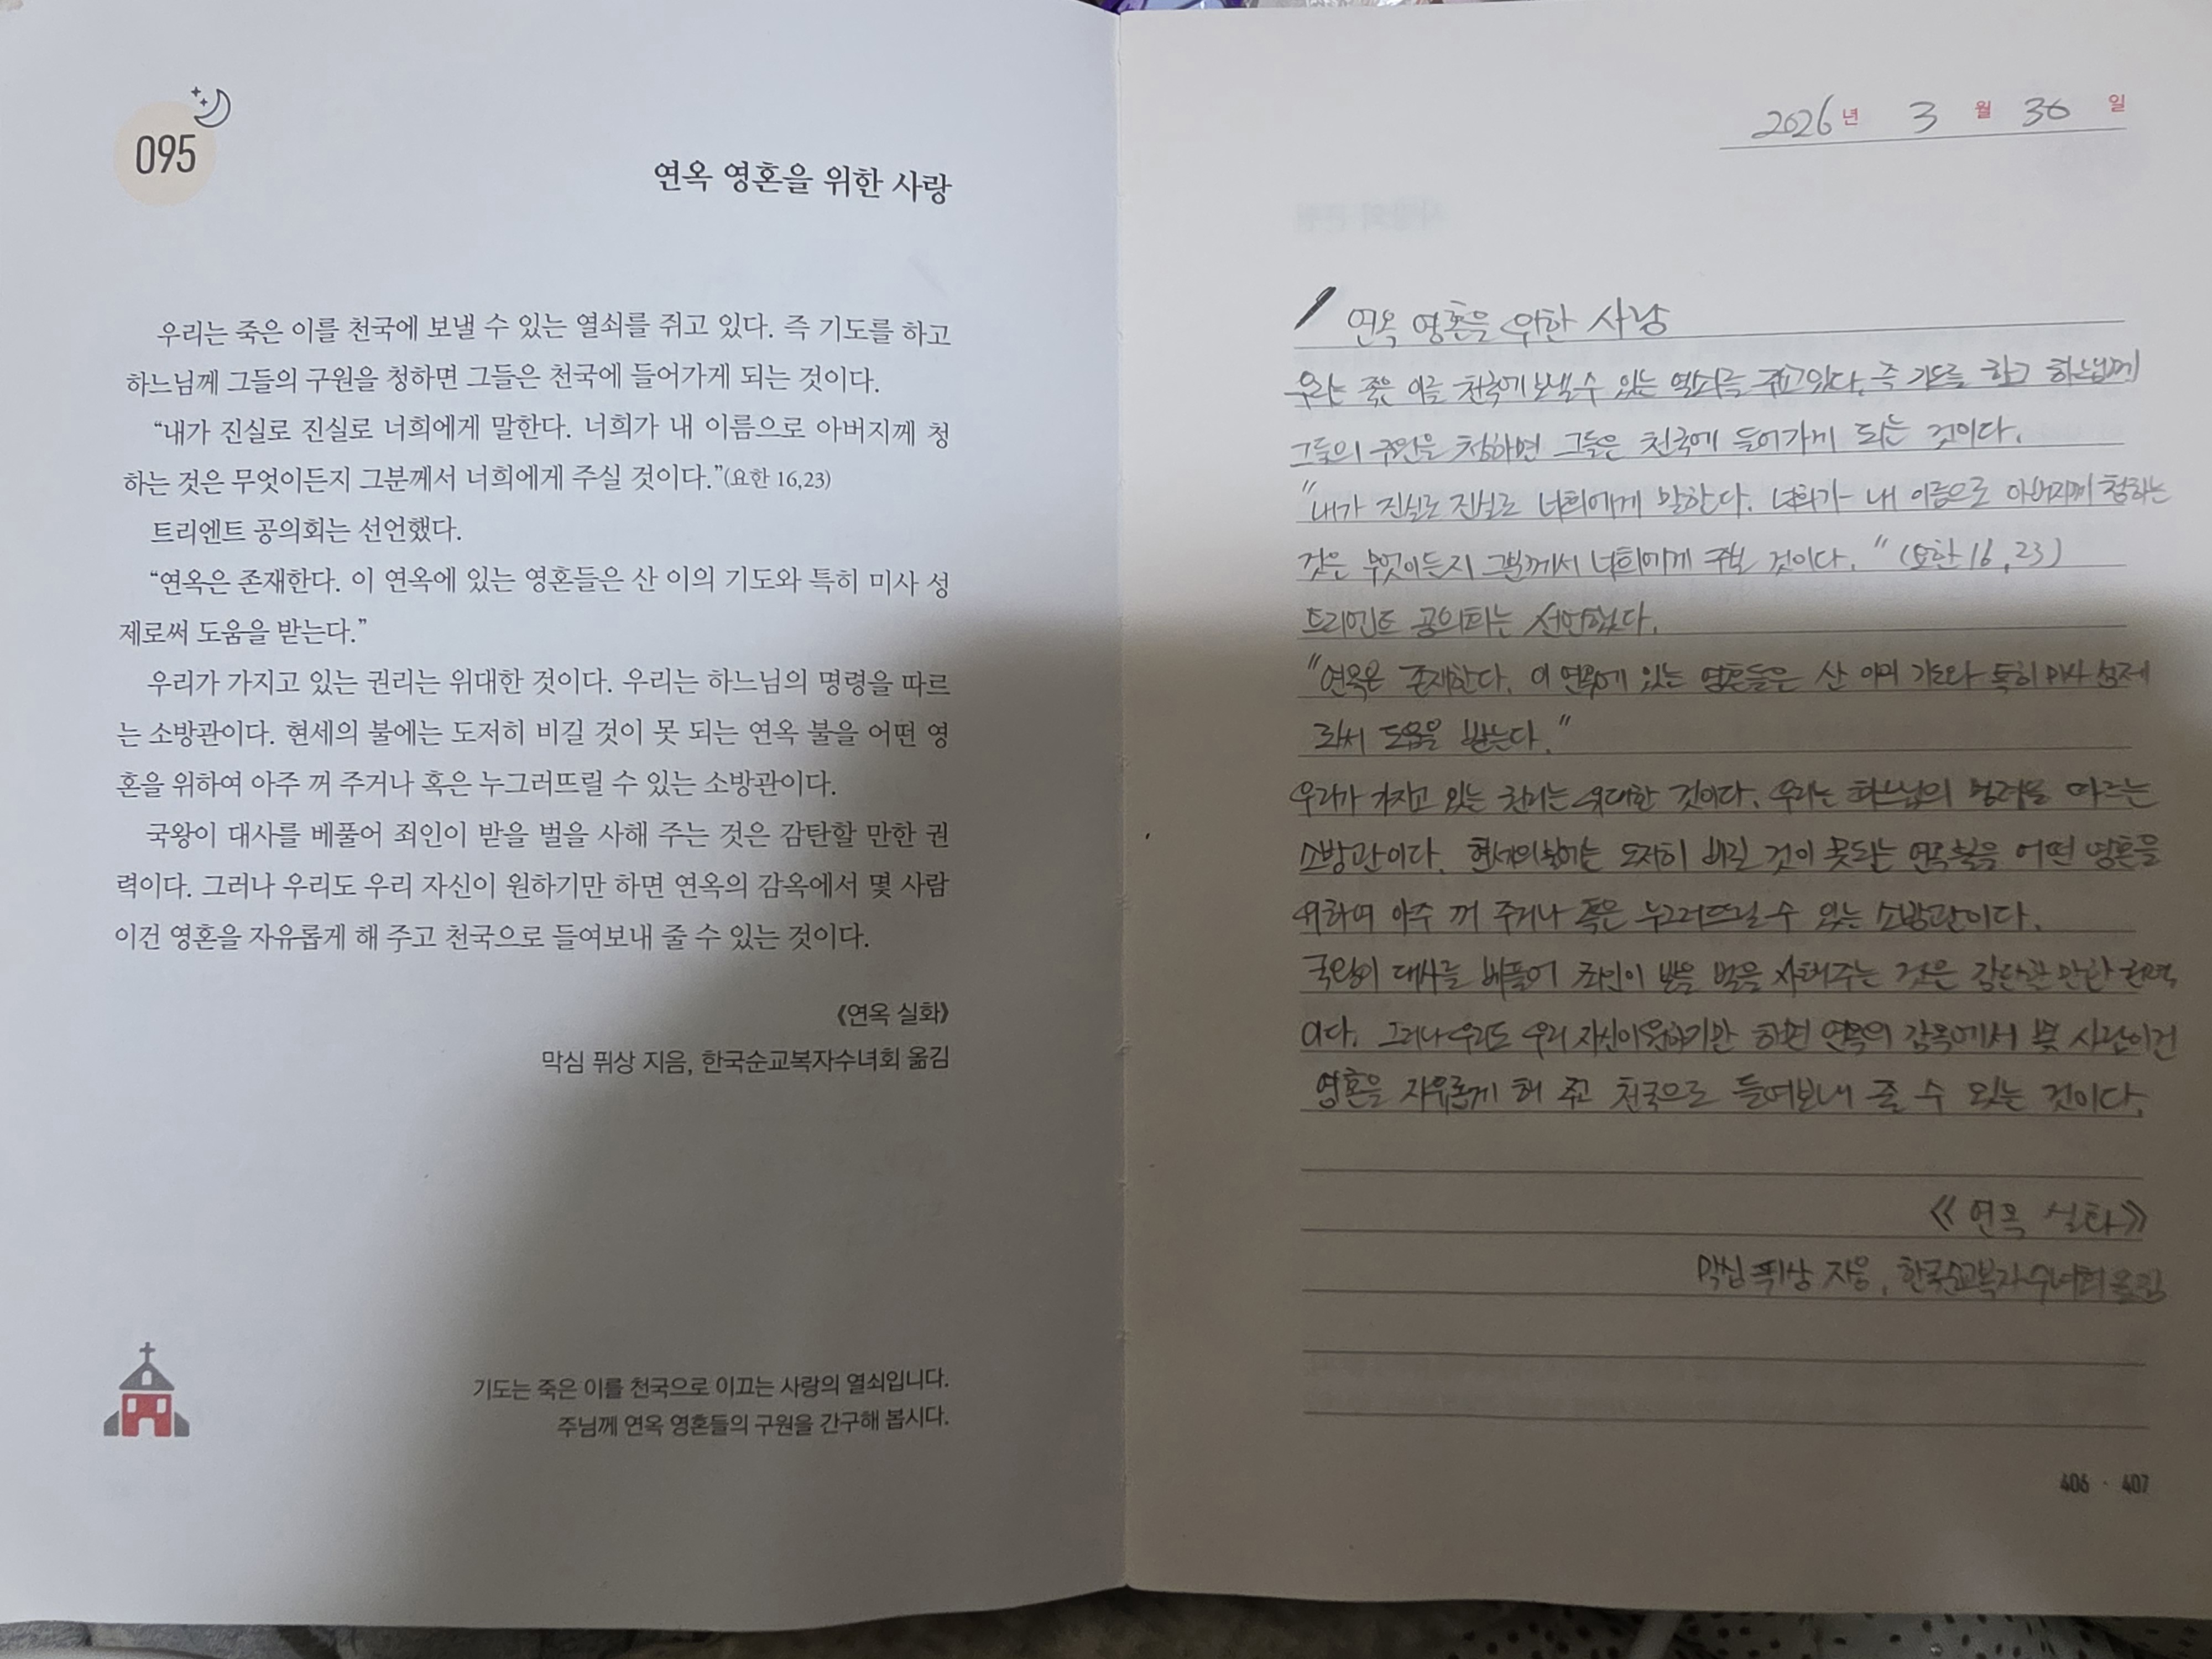 095
연옥 영혼을 위한 사랑
우리는 죽은 이를 천국에 보낼 수 있는 열쇠를 쥐고 있다. 즉 기도를 하고
하느님께 그들의 구원을 청하면 그들은 천국에 들어가게 되는 것이다.
“내가 진실로 진실로 너희에게 말한다. 너희가 내 이름으로 아버지께 청
하는 것은 무엇이든지 그분께서 너희에게 주실 것이다.”(요한 16,23)
트리엔트 공의회는 선언했다.
“연옥은 존재한다. 이 연옥에 있는 영혼들은 산 이의 기도와 특히 미사 성
제로써 도움을 받는다.”
우리가 가지고 있는 권리는 위대한 것이다. 우리는 하느님의 명령을 따르
는 소방관이다. 현세의 불에는 도저히 비길 것이 못 되는 연옥 불을 어떤 영
혼을 위하여 아주 꺼 주거나 혹은 누그러뜨릴 수 있는 소방관이다.
국왕이 대사를 베풀어 죄인이 받을 벌을 사해 주는 것은 감탄할 만한 권
력이다. 그러나 우리도 우리 자신이 원하기만 하면 연옥의 감옥에서 몇 사람
이건 영혼을 자유롭게 해 주고 천국으로 들여보내 줄 수 있는 것이다.
《연옥 실화》
막심 퓌상 지음, 한국순교복자수녀회 옮김
기도는 죽은 이를 천국으로 이끄는 사랑의 열쇠입니다.
주님께 연옥 영혼들의 구원을 간구해 봅시다.
2026년 3월 30일
연옥 영혼을 위한 사랑
우리는 죽은 이를 천국에 보낼 수 있는 열쇠를 쥐고 있다. 즉 기도를 하고 하느님께
그들의 구원을 청하면 그들은 천국에 들어가게 되는 것이다.
"내가 진실로 진실로 너희에게 말한다. 너희가 내 이름으로 아버지께 청하는
것은 무엇이든지 그분께서 너희에게 주실 것이다." (요한 16,23)
트리엔트 공의회는 선언했다.
"연옥은 존재한다. 이 연옥에 있는 영혼들은 산 이의 기도와 특히 미사 성제
로써 도움을 받는다."
우리가 가지고 있는 권리는 위대한 것이다. 우리는 하느님의 명령을 따르는
소방관이다. 현세의 불에는 도저히 비길 것이 못되는 연옥 불을 어떤 영혼을
위하여 아주 꺼 주거나 혹은 누그러뜨릴 수 있는 소방관이다.
국왕이 대사를 베풀어 죄인이 받을 벌을 사해주는 것은 감탄할 만한 권력
이다. 그러나 우리도 우리 자신이 원하기만 하면 연옥의 감옥에서 몇 사람이건
영혼을 자유롭게 해 주고 천국으로 들여보내 줄 수 있는 것이다.
《연옥 실화》
막심 퓌상 지음, 한국순교복자수녀회 옮김
406 · 407